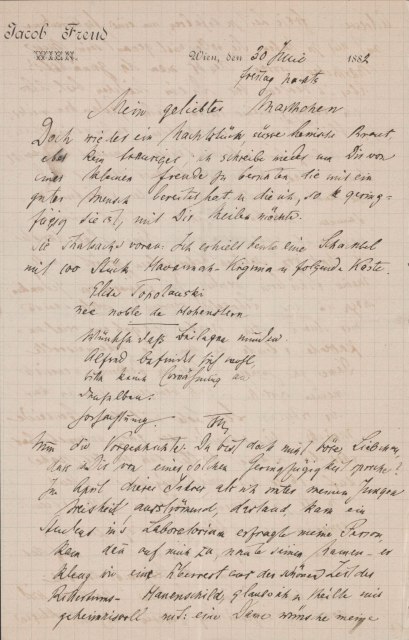 Jacob Freud
WIEN.
Wien, den 30 Juni 1882
Freitag nachts
Mein geliebtes Marthchen
Doch wieder ein Nachtstück, diese Braut
aber kein trauriges, ich schreibe nieder um Dir von
einer kleinen Freude zu berichten die mir ein
guter Mensch bereitet hat u die ich, so gering-
fügig sie ist, mit Dir theilen möchte.
Die Thatsache voran: Ich erhielt heute eine Schachtel
mit 100 Stück Virginia u folgende Karte.
Elise Topolanski
née noble de Hohenstern
Wünscht daß Beilagen munden.
Alfred befindet sich wohl,
bitte keine Erwähnung an
denselben.
Nun die Vorgeschichte. Du bist doch nicht böse, Liebchen,
daß ich Dir von einer solchen Geringfügigkeit spreche?
Im April dieses Jahres als ich unter meinen Jungen
Weisheit ausströmend, dastand, kam ein
Student ins Laboratorium erfragte meine Person
kam dann auf mich zu, nannte seinen Namen – er
klang wie eine aus der schönen Zeit des
Ritterthums – Hauenschild glaub ich u theilte mir
geheimnisvoll mit: eine Dame wünsche meine